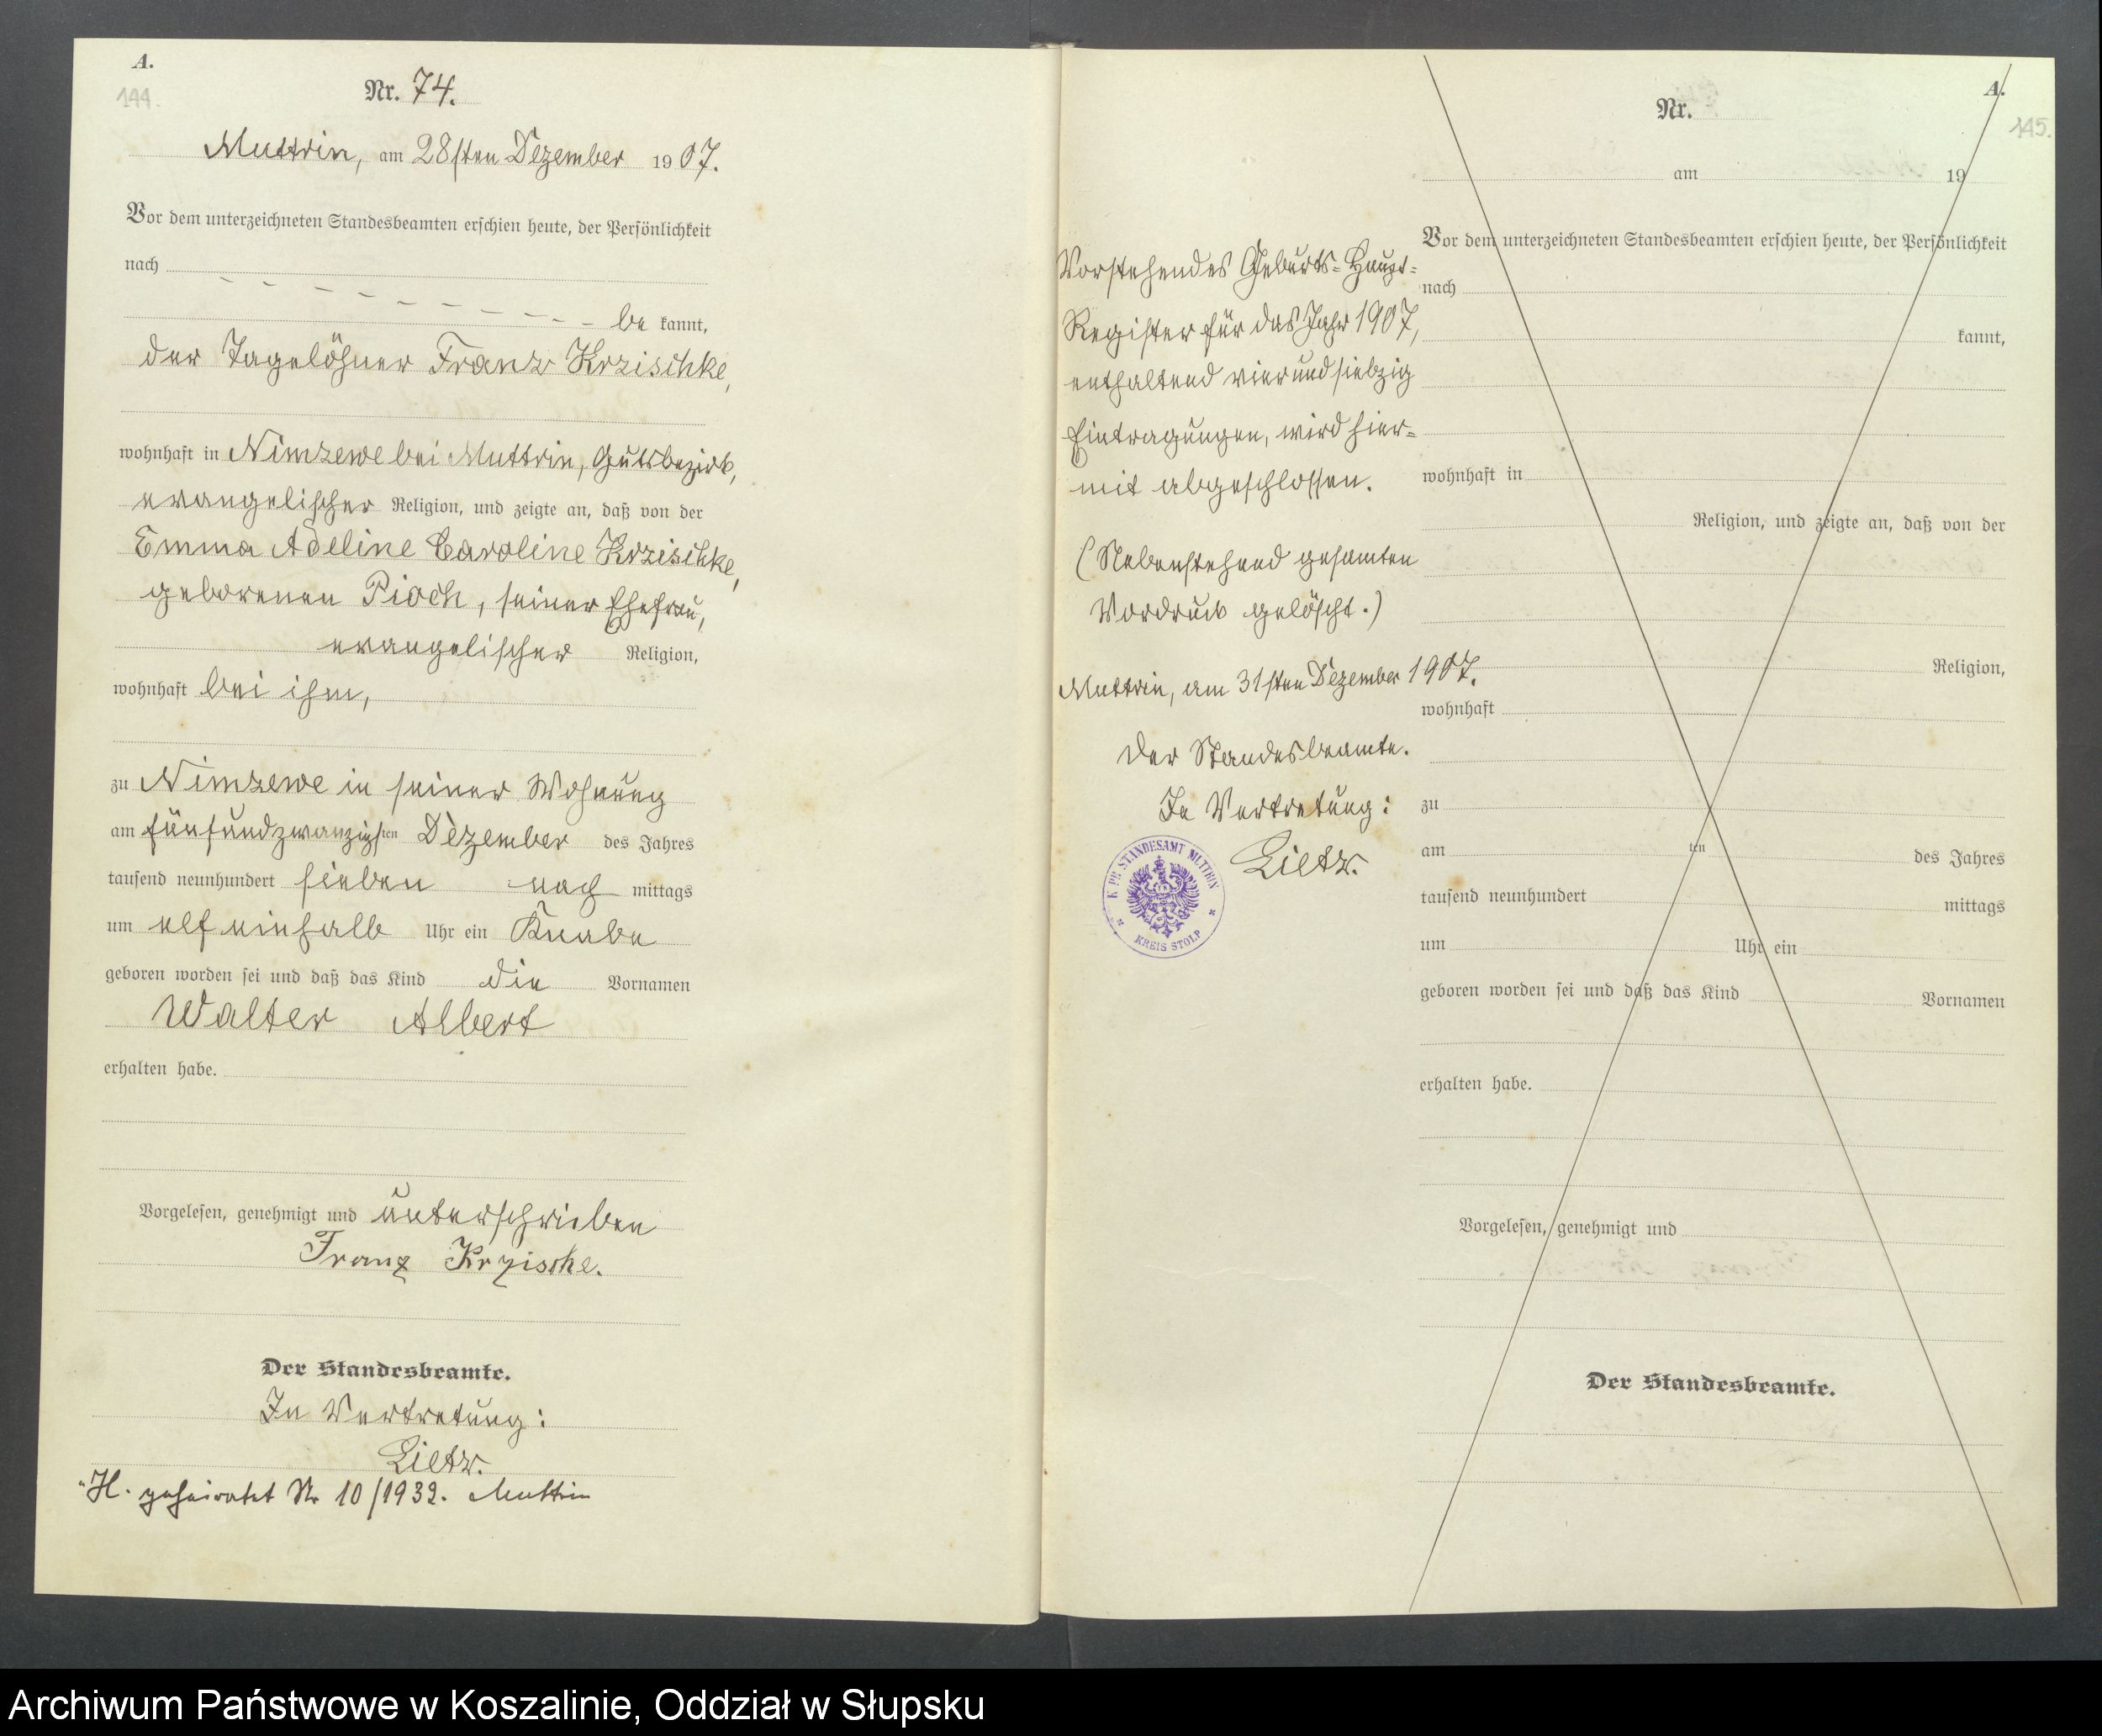 A.
144.
Nr. 74.
Muttrin, am 28sten Dezember 1907.
Vor dem unterzeichneten Standesbeamten erschien heute, der Persönlichkeit
nach
be kannt,
der Tagelöhner Franz Krzischke,
wohnhaft in Nimzewe bei Muttrin, Gutsbezirk,
evangelischer Religion, und zeigte an, daß von der
Emma Adeline Caroline Krzischke,
geborenen Pioch, seiner Ehefrau,
evangelischer Religion,
wohnhaft bei ihm,
zu Nimzewe in seiner Wohnung
am fünfundzwanzigsten Dezember des Jahres
tausend neunhundert sieben nach mittags
um elf einhalb Uhr ein Knabe
geboren worden sei und daß das Kind die Vornamen
Walter Albert
erhalten habe.
Vorgelesen, genehmigt und unterschrieben
Franz Krzischke.
Der Standesbeamte.
In Vertretung:
Lietz.
H. geheiratet Nr 10/1932. Muttrin
A.
145.
Nr.
am 19
Vor dem unterzeichneten Standesbeamten erschien heute, der Persönlichkeit
nach
kannt,
wohnhaft in
Religion, und zeigte an, daß von der
Religion,
wohnhaft
zu
am ten des Jahres
tausend neunhundert mittags
um Uhr ein
geboren worden sei und daß das Kind Vornamen
erhalten habe.
Vorgelesen, genehmigt und
Der Standesbeamte.
Vorstehendes Geburts-Haupt-
Register für das Jahr 1907,
enthaltend vierundsiebzig
Eintragungen, wird hier-
mit abgeschlossen.
(Nebenstehend gesamten
Vordruck gelöscht.)
Muttrin, am 31sten Dezember 1907.
Der Standesbeamte.
In Vertretung:
Lietz.
K. PR. STANDESAMT MUTTRIN
KREIS STOLP
Archiwum Państwowe w Koszalinie, Oddział w Słupsku